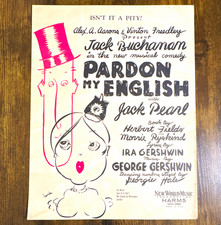 ISN'T IT A PITY!
Alex. A. Aarons & Vinton Freedley
Present
Jack Buchanan
in the new musical comedy
PARDON
MY ENGLISH
with
Jack Pearl
Book by
Herbert Fields
Morrie Ryskind
Lyrics by
IRA GERSHWIN
Music by
GEORGE GERSHWIN
Dancing numbers staged by
George Hale
NEW WORLD MUSIC
HARMS